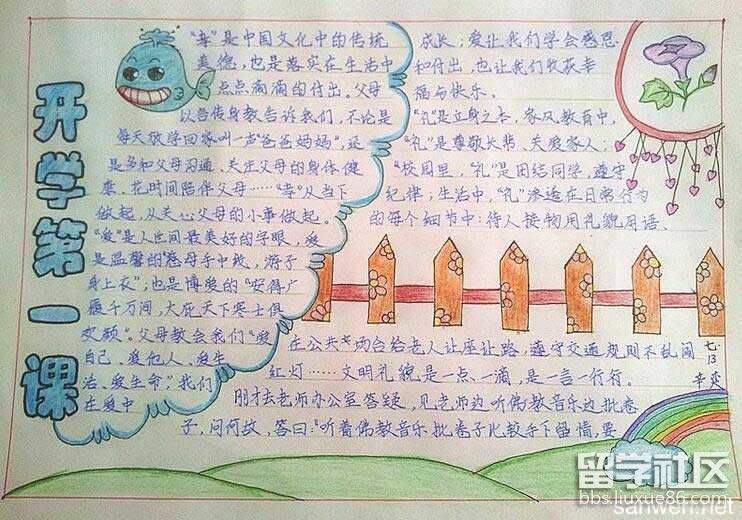 开学第一课
"孝"是中国文化中的传统
美德，也是落实在生活中
点点滴滴的付出。父母
以言传身教告诉我们，不论是
每天放学回家叫一声"爸爸妈妈"，还
是多和父母沟通、关注父母的身体健
康、花时间陪伴父母……"孝"从当下
做起，从关心父母的小事做起。
"爱"是人世间最美好的字眼，爱
是温馨的"慈母手中线，游子
身上衣"，也是博爱的"安得广
厦千万间，大庇天下寒士俱
欢颜"。父母教会我们"爱
自己、爱他人、爱生
活、爱生命"我们
在爱中
成长；爱让我们学会感恩
和付出，也让我们收获幸
福与快乐。
"礼"是立身之本，家风教育中，
"礼"是尊敬长辈、关爱家人；
"校园里，"礼"是团结同学，遵守
纪律；生活中，"礼"渗透在日常行为
的每个细节中：待人接物用礼貌用语、
在公共场台给老人让座让路，遵守交通规则不乱闯
红灯……文明礼貌是一点一滴，是一言一行行。
刚才去老师办公室答疑，见老师边听佛教音乐边批卷
子，问何故，答曰："听着佛教音乐批卷子比较手下留情，要
七·13
留学社区
bbs.liuxue86.com
sanwen.net